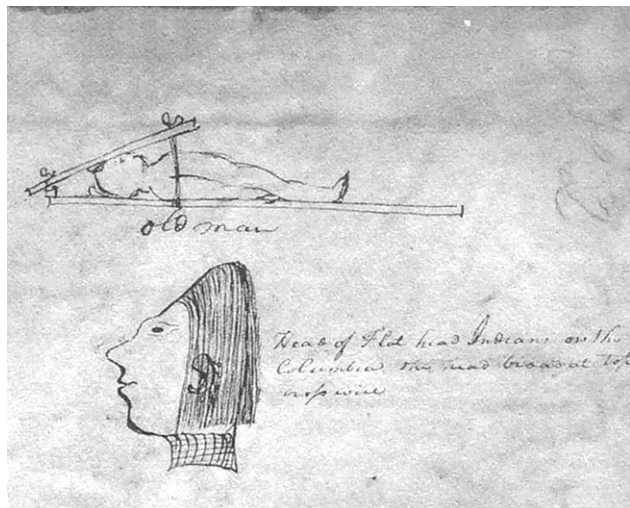 old man
Head of Flat head Indians on the
Columbia the head broad at top
crosswise